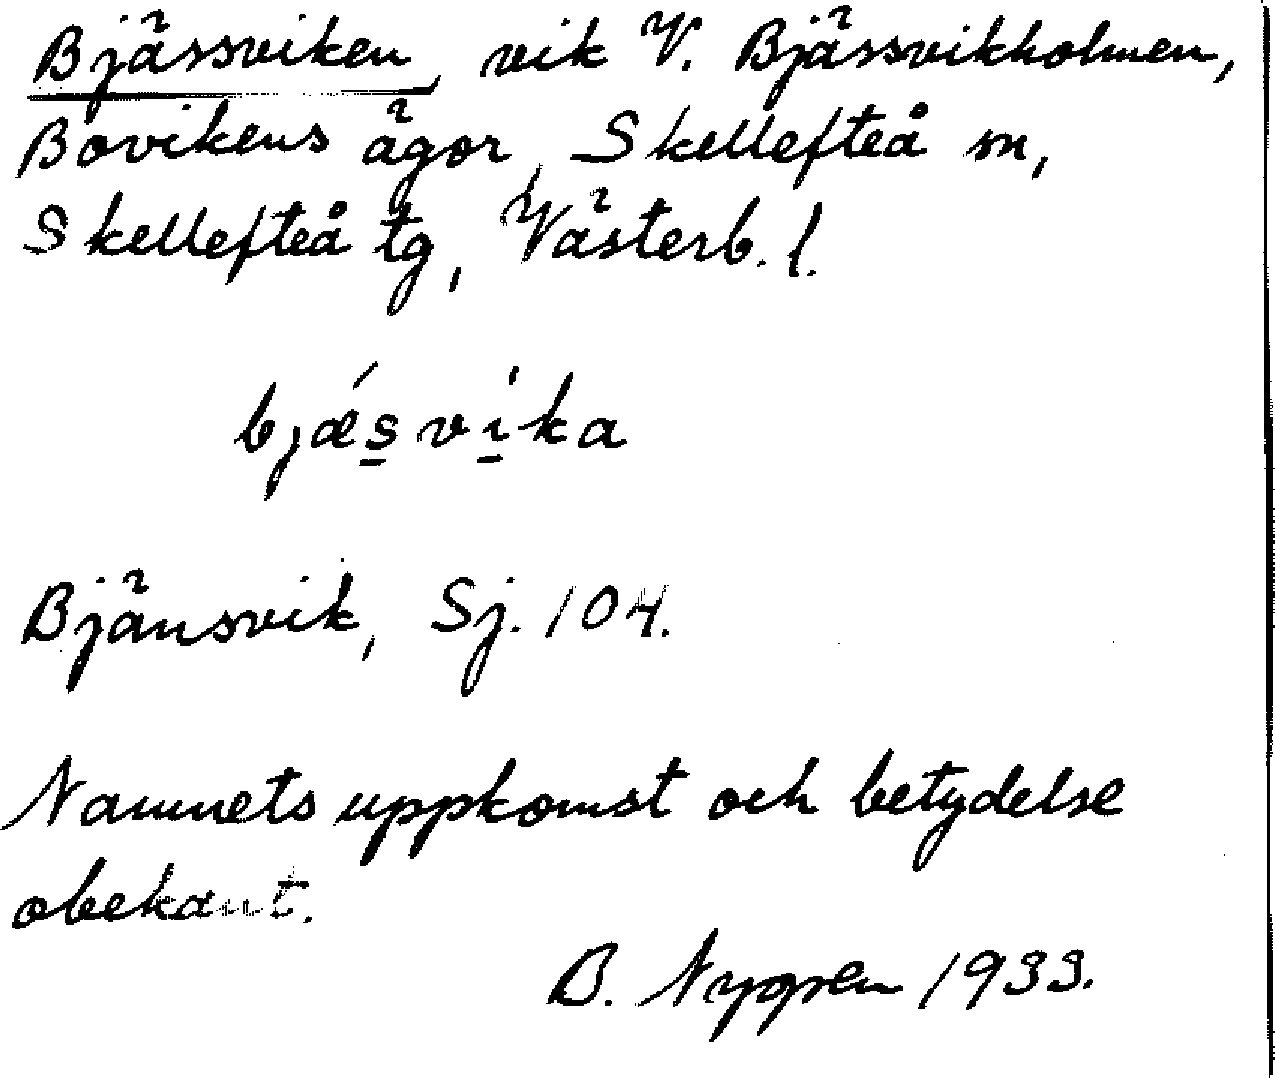 Bjässviken, vik V. Bjässvikholmen,
Bovikens ägor, Skellefteå sn,
Skellefteå tg, Västerb. l.
bjǽsvìka
Bjänsvik, Sj. 104.
Namnets uppkomst och betydelse
obekant.
B. Nygren 1933.